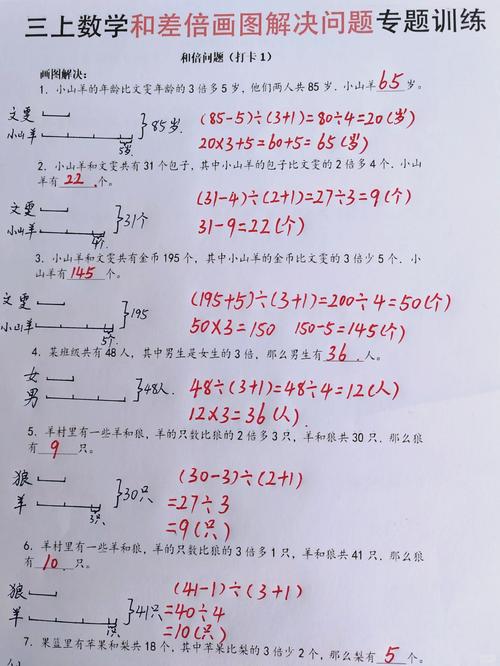 三上数学和差倍画图解决问题专题训练
和倍问题（打卡1）
画图解决：
1. 小山羊的年龄比文雯年龄的3倍多5岁，他们两人共85岁．小山羊65岁。
文雯
小山羊
85岁
(85-5)÷(3+1)=80÷4=20(岁)
20×3+5=60+5=65(岁)
2. 小山羊和文雯共有31个包子，其中小山羊的包子比文雯的2倍多4个．小山
羊有22个。
文雯
小山羊
4个
31个
(31-4)÷(2+1)=27÷3=9(个)
31-9=22(个)
3. 小山羊和文雯共有金币195个，其中小山羊的金币比文雯的3倍少5个．小
山羊有145个。
文雯
小山羊
5个
195
(195+5)÷(3+1)=200÷4=50(个)
50×3=150 150-5=145(个)
4. 某班级共有48人，其中男生是女生的3倍．那么男生有36人。
女
男
48人
48÷(3+1)=48÷4=12(人)
12×3=36(人)
5. 羊村里有一些羊和狼，羊的只数比狼的2倍多3只，羊和狼共30只．那么狼
有9只。
狼
羊
3只
30只
(30-3)÷(2+1)
=27÷3
=9(只)
6. 羊村里有一些羊和狼，羊的只数比狼的3倍多1只，羊和狼共41只．那么狼
有10只。
狼
羊
1只
41只
(41-1)÷(3+1)
=40÷4
=10(只)
7. 果篮里有苹果和梨共18个，其中苹果比梨的3倍少2个，那么梨有5个。